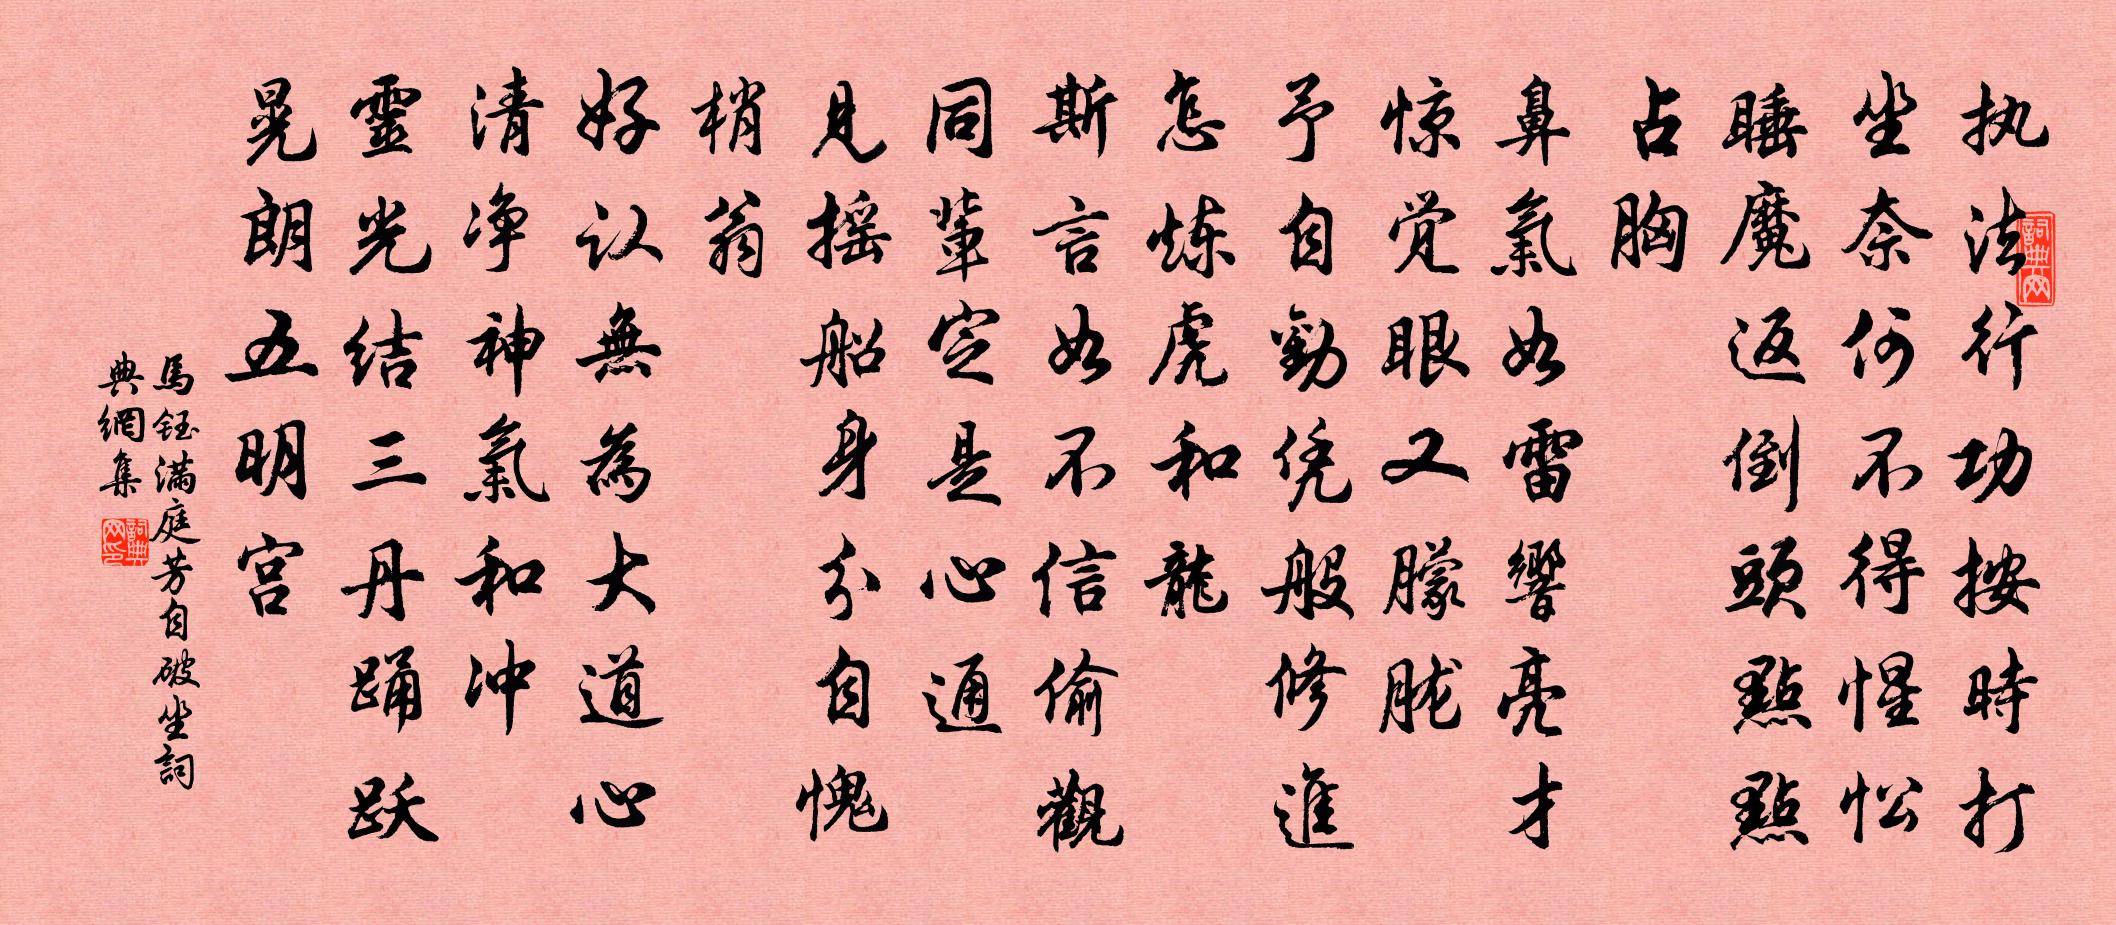 执法行功按時打
坐奈何不得惺忪
睡魔返倒頭點點
占胸
鼻氣如雷響亮才
惊觉眼又朦胧
予自勸凭般修進
怎炼虎和龍
斯言如不信偷觀
同輩定是心通
見摇船身分自愧
梢翁
好认無為大道心
清净神氣和冲
靈光结三丹踊跃
晃朗五明宫
馬鈺满庭芳自破坐詞
典網集
詞典网
詞典网印